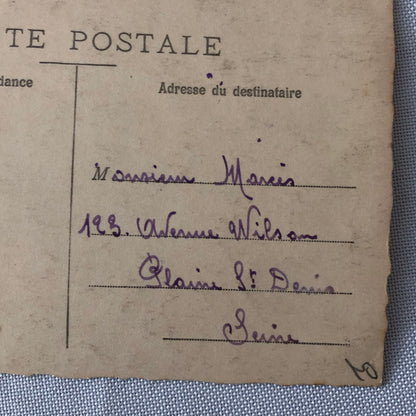 TE POSTALE
dance
Adresse du destinataire
Monsieur Marcis
123. Avenue Wilson
Plaine St Denis
Seine
10